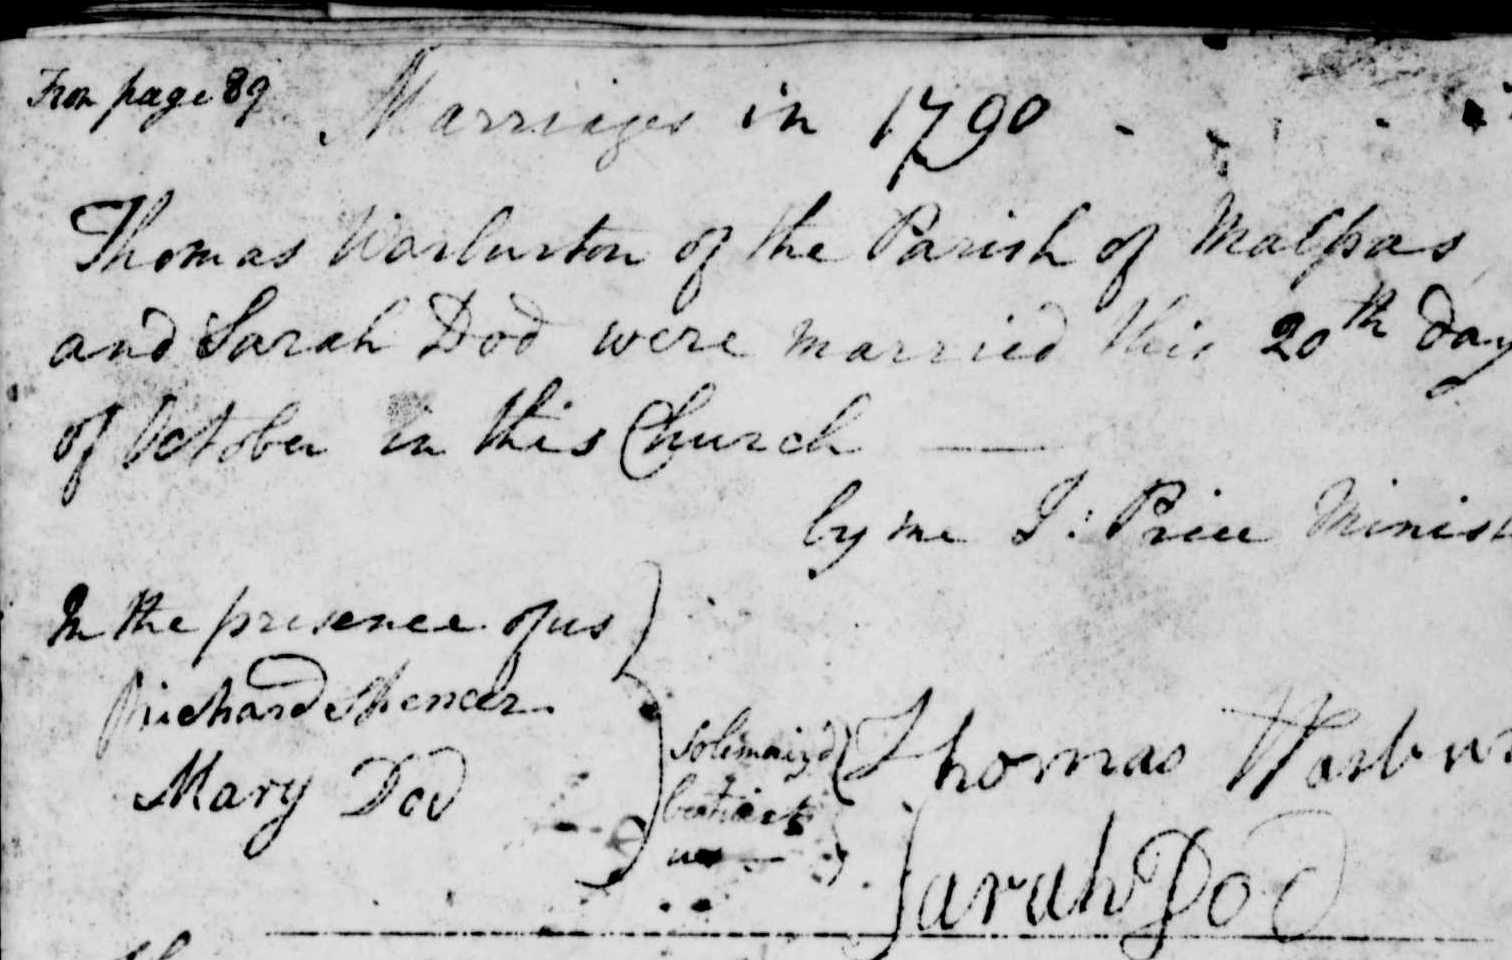 From page 89
Marriages in 1790
Thomas Warburton of the Parish of Malpas
and Sarah Dod were married this 20th day
of October in this Church
by me J: Price Minist
In the presence of us
Richard Spencer
Mary Dod
Solemniz'd
between
us
Thomas Warbur
Sarah Dod